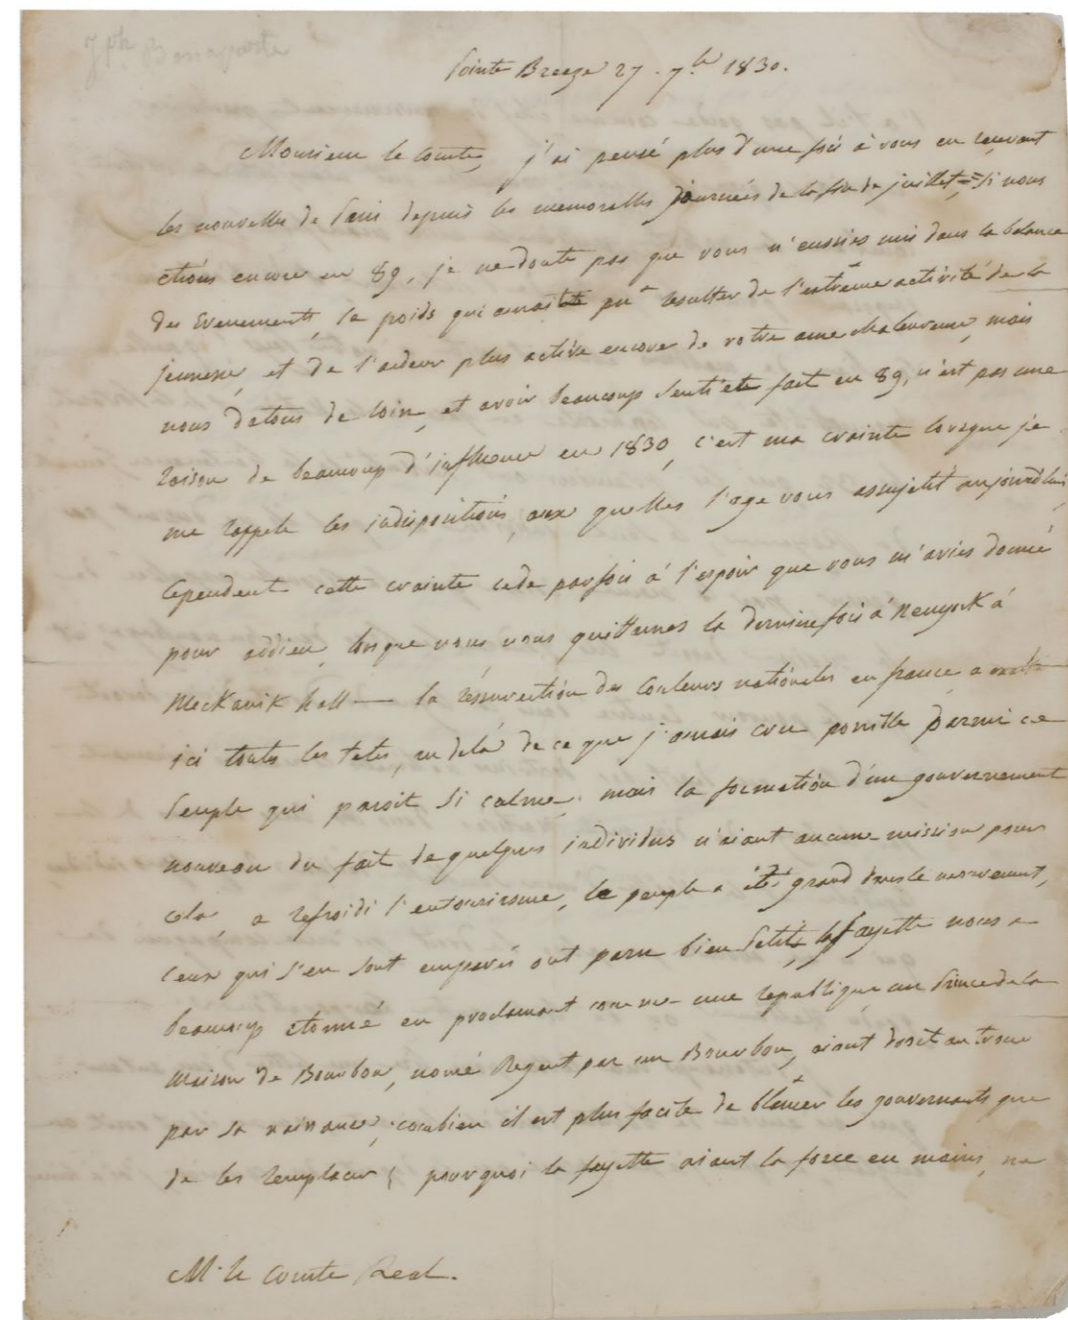 Jph Bonaparte
Pointe Breeze 27. 7bre 1830.
Monsieur le Comte, j'ai pensé plus d'une fois à vous en recevant
les nouvelles de Paris depuis les memorables journées de la fin de juillet = Si nous
étions encore en 89, je ne doute pas que vous n'eussies mis dans la balance
des Evenements, le poids qui auroit pu resulter de l'extrême activité de la
jeunesse, et de l'ardeur plus active encore de votre ame chaleureuse, mais
nous datons de loin, et avoir beaucoup senti et fait en 89, n'est pas une
raison de beaucoup d'influence en 1830, c'est ma crainte lorsque je
me rappele les indispositions, aux quelles l'age vous assujetit aujourd'hui,
Cependent cette crainte cede parfois à l'espoir que vous m'avies donné
pour addieu, lorsque nous nous quittames la derniere fois à Newyork à
Meckanik hall — la résurrection des Couleurs nationales en france a
ici toutes les tetes, au delà de ce que j'aurais cru possible parmi ce
Peuple qui paroit si calme. mais la formation d'un gouvernement
nouveau du fait de quelques individus n'aiant aucune mission pour
cela, a refroidi l'entousiasme, le peuple a été grand dans le mouvement,
ceux qui s'en sont emparés ont paru bien petits, la fayette nous a
beaucoup étonné en proclamant comme une republique un Prince de la
Maison de Bourbon, nomé Regent par un Bourbon, aiant droit au trone
par sa naissance, combien il est plus facile de blâmer les gouvernants que
de les remplacer; pourquoi la fayette aiant la force en mains, ne
M. le Comte Real.